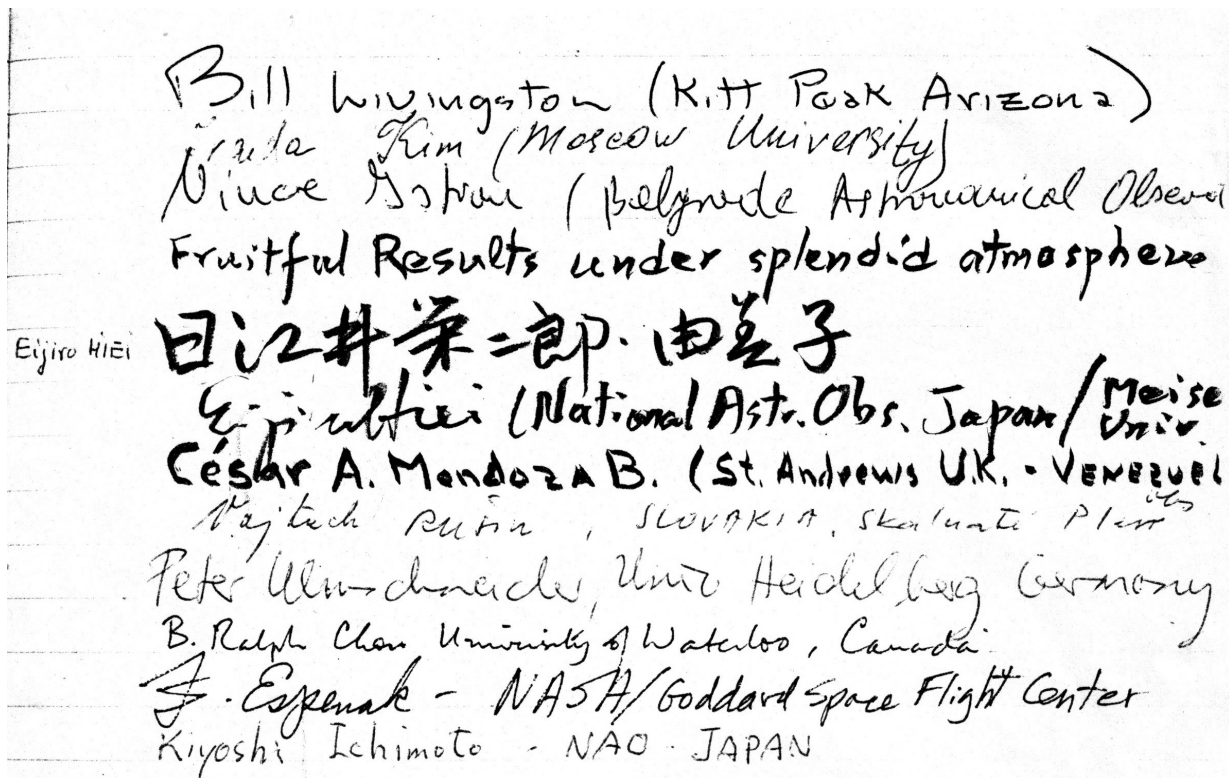 Bill Livingston (Kitt Peak Arizona)
Kim (Moscow University)
Vince (Belgrade Astronomical Observa
Fruitful Results under splendid atmosphere
Eijiro HIEI 日江井栄二郎・由美子
Eijiro Hiei (National Astr. Obs. Japan / Meise Univ.
César A. Mendoza B. (St. Andrews U.K. - VENEZUEL
Vojtech Rušin, SLOVAKIA, Skalnaté Pleso Obs
Peter Ulmschneider, Univ Heidelberg Germany
B. Ralph Chou University of Waterloo, Canada
F. Espenak - NASA/Goddard Space Flight Center
Kiyoshi Ichimoto - NAO - JAPAN